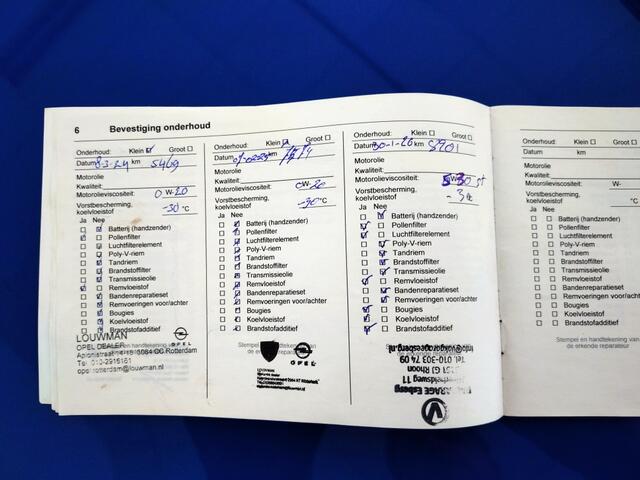 6 Bevestiging onderhoud
Onderhoud: Klein ☑ Groot ☐
Datum 8-3-24 km 5469
Motorolie
Kwaliteit:
Motorolieviscositeit: 0 W-20
Vorstbescherming,
koelvloeistof -30 °C
Ja Nee
Batterij (handzender)
Pollenfilter
Luchtfilterelement
Poly-V-riem
Tandriem
Brandstoffilter
Transmissieolie
Remvloeistof
Bandenreparatieset
Remvoeringen voor/achter
Bougies
Koelvloeistof
Brandstofadditief
Stempel en handtekening van
de erkende reparateur
LOUWMAN
OPEL DEALER
OPEL
Rotterdam
Tel 010-2915161
opel.rotterdam@louwman.nl
Onderhoud: Klein ☑ Groot ☐
Datum km
Motorolie
Kwaliteit:
Motorolieviscositeit: 0W-20
Vorstbescherming,
koelvloeistof -30 °C
Ja Nee
Batterij (handzender)
Pollenfilter
Luchtfilterelement
Poly-V-riem
Tandriem
Brandstoffilter
Transmissieolie
Remvloeistof
Bandenreparatieset
Remvoeringen voor/achter
Bougies
Koelvloeistof
Brandstofadditief
Stempel en handtekening van
de erkende reparateur
OPEL
Onderhoud: Klein ☐ Groot ☐
Datum 30-1-26 km 8901
Motorolie
Kwaliteit:
Motorolieviscositeit:
Vorstbescherming,
koelvloeistof
Ja Nee
Batterij (handzender)
Pollenfilter
Luchtfilterelement
Poly-V-riem
Tandriem
Brandstoffilter
Transmissieolie
Remvloeistof
Bandenreparatieset
Remvoeringen voor/achter
Bougies
Koelvloeistof
Brandstofadditief
Stempel en handtekening van
GARAGE Esberg
GJ Rhoon
Tel. 010-303 74 09
Onderhoud: Klein ☐ Groot ☐
Datum km
Motorolie
Kwaliteit:
Motorolieviscositeit: W-
Vorstbescherming,
koelvloeistof °C
Ja Nee
Batterij (handzender)
Pollenfilter
Luchtfilterelement
Poly-V-riem
Tandriem
Brandstoffilter
Transmissieolie
Remvloeistof
Bandenreparatieset
Remvoeringen voor/achter
Bougies
Koelvloeistof
Brandstofadditief
Stempel en handtekening van
de erkende reparateur